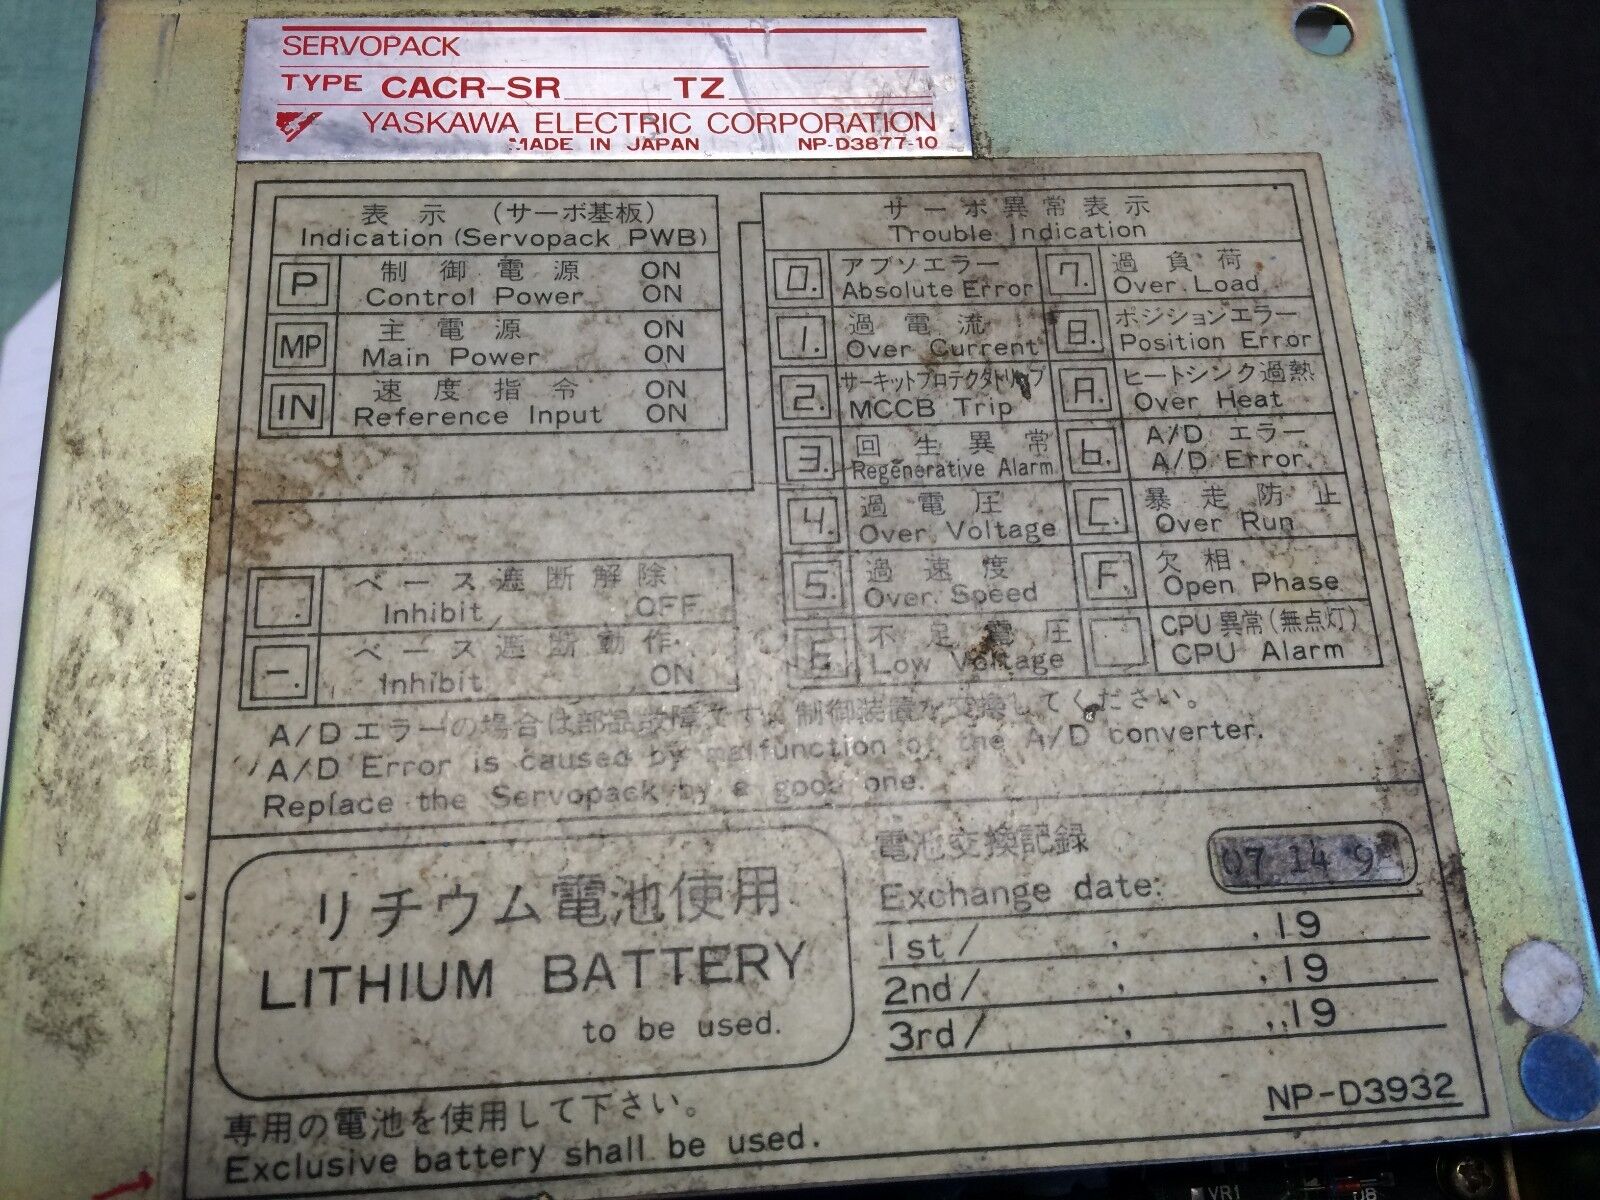 SERVOPACK
TYPE CACR-SR TZ
YASKAWA ELECTRIC CORPORATION
MADE IN JAPAN NP-D3877-10
表示 (サーボ基板)
Indication (Servopack PWB)
P 制御電源 ON
Control Power ON
MP 主電源 ON
Main Power ON
IN 速度指令 ON
Reference Input ON
サーボ異常表示
Trouble Indication
0. アブソエラー
Absolute Error
1. 過電流
Over Current
2. サーキットプロテクタトリップ
MCCB Trip
3. 回生異常
Regenerative Alarm
4. 過電圧
Over Voltage
5. 過速度
Over Speed
E. 不足電圧
Low Voltage
7. 過負荷
Over Load
8. ポジションエラー
Position Error
A. ヒートシンク過熱
Over Heat
b. A/D エラー
A/D Error
C. 暴走防止
Over Run
F. 欠相
Open Phase
CPU 異常(無点灯)
CPU Alarm
. ベース遮断解除
Inhibit OFF
-. ベース遮断動作
Inhibit ON
A/D エラーの場合は部品故障です。制御装置を交換してください。
A/D Error is caused by malfunction of the A/D converter.
Replace the Servopack by a good one.
リチウム電池使用
LITHIUM BATTERY
to be used.
電池交換記録
Exchange date: 07 14 9
1st/ , ,19
2nd/ , ,19
3rd/ , ,19
専用の電池を使用して下さい。
Exclusive battery shall be used.
NP-D3932
VR1